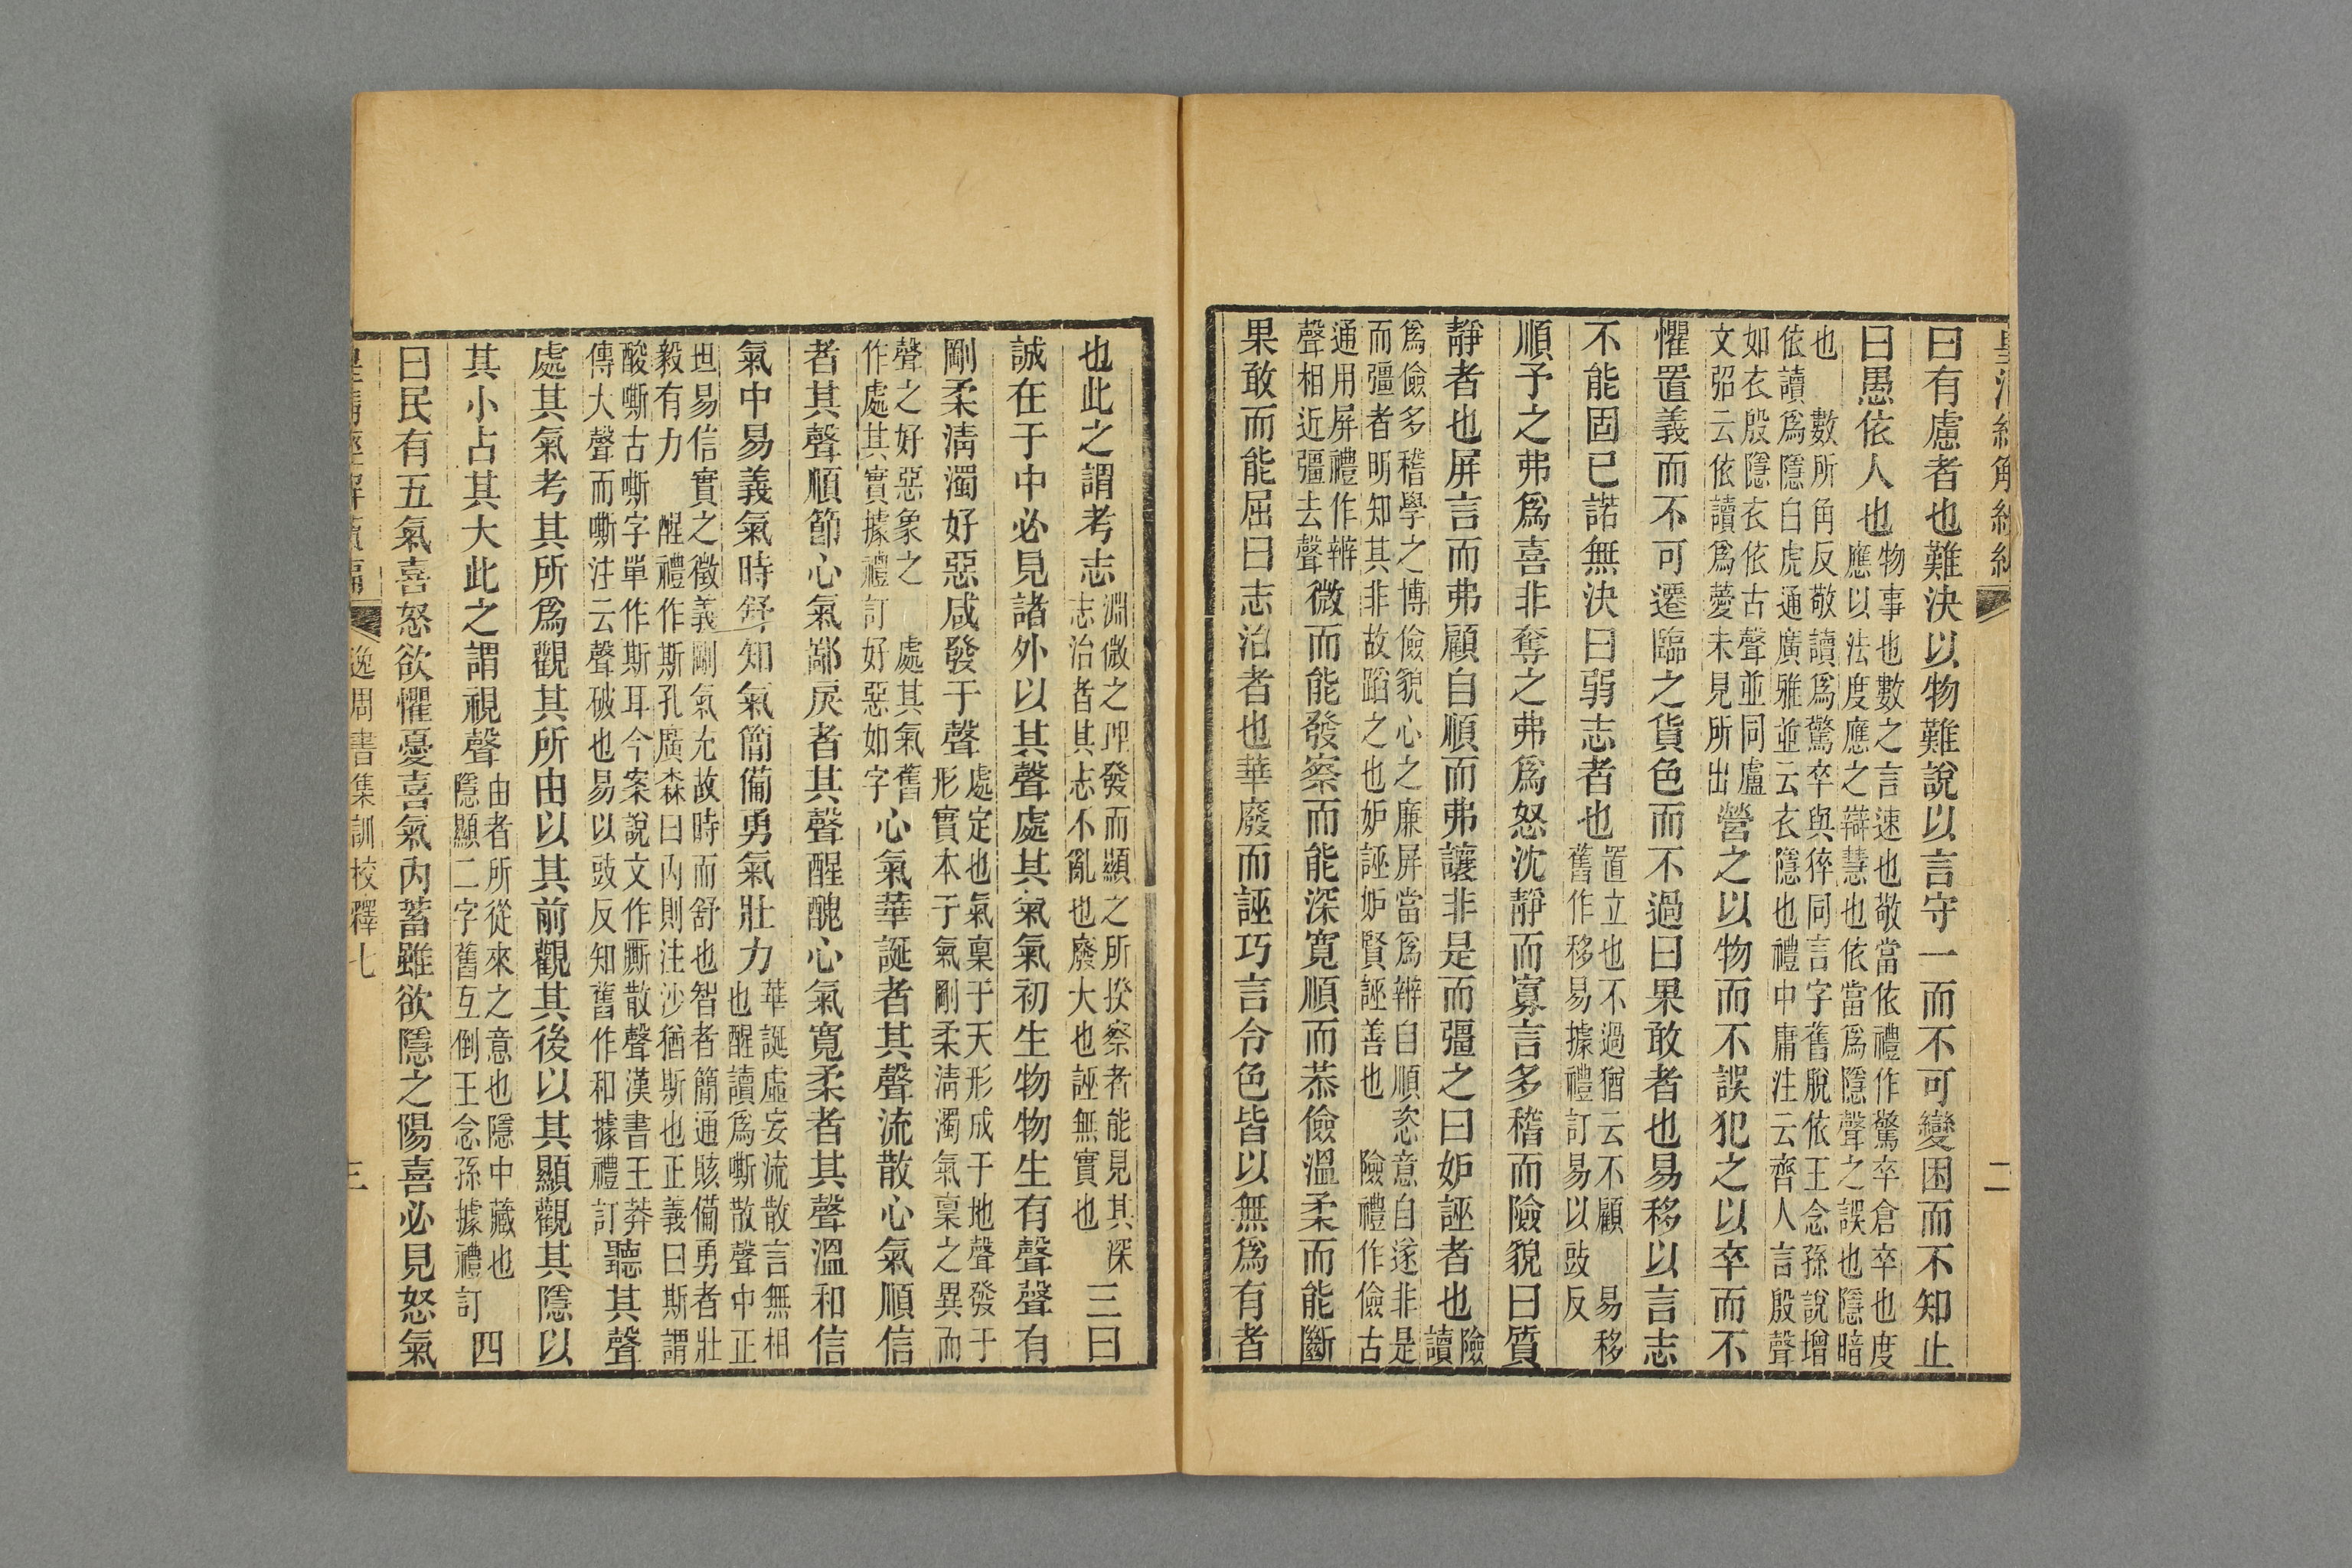 皇清經解續編
二
曰有慮者也難決以物難說以言守一而不可變困而不知止
曰愚依人也物事也數之言速也敬當依禮作驚卒倉卒也度
應以法度應之辯慧也依當爲隱聲之誤也隱暗
也 數所角反敬讀爲驚卒與猝同言字舊脫依王念孫說增
依讀爲隱白虎通廣雅並云衣隱也禮中庸注云齊人言殷聲
如衣殷隱衣依古聲並同盧
文弨云依讀爲薆未見所出營之以物而不誤犯之以卒而不
懼置義而不可遷臨之貨色而不過曰果敢者也易移以言志
不能固已諾無決曰弱志者也置立也不過猶云不顧 易移
舊作移易據禮訂易以豉反
順予之弗爲喜非奪之弗爲怒沈靜而寡言多稽而險貌曰質
靜者也屏言而弗顧自順而弗讓非是而彊之曰妒誣者也險
讀
爲儉多稽學之博儉貌心之廉屏當爲辨自順恣意自遂非是
而彊者明知其非故蹈之也妒誣妒賢誣善也 險禮作儉古
通用屏禮作辨
聲相近彊去聲微而能發察而能深寬順而恭儉溫柔而能斷
果敢而能屈曰志治者也華廢而誣巧言令色皆以無爲有者
也此之謂考志淵微之理發而顯之所揆察者能見其深
志治者其志不亂也廢大也誣無實也三曰
誠在于中必見諸外以其聲處其氣氣初生物物生有聲聲有
剛柔淸濁好惡咸發于聲處定也氣稟于天形成于地聲發于
形實本于氣剛柔淸濁氣稟之異而
聲之好惡象之 處其氣舊
作處其實據禮訂好惡如字心氣華誕者其聲流散心氣順信
者其聲順節心氣鄙戾者其聲醒醜心氣寬柔者其聲溫和信
氣中易義氣時舒知氣簡備勇氣壯力華誕虛妄流散言無相
也醒讀爲嘶散聲中正
也易信實之徵義剛氣尢故時而舒也智者簡通賅備勇者壯
毅有力 醒禮作斯孔廣森曰內則注沙猶斯也正義曰斯謂
酸嘶古嘶字單作斯耳今案說文作誓散聲漢書王莽
傳大聲而嘶注云聲破也易以豉反知舊作和據禮訂聽其聲
處其氣考其所爲觀其所由以其前觀其後以其顯觀其隱以
其小占其大此之謂視聲由者所從來之意也隱中藏也
隱顯二字舊互倒王念孫據禮訂四
曰民有五氣喜怒欲懼憂喜氣內蓄雖欲隱之陽喜必見怒氣
皇清經解續編
逸周書集訓校釋七
三